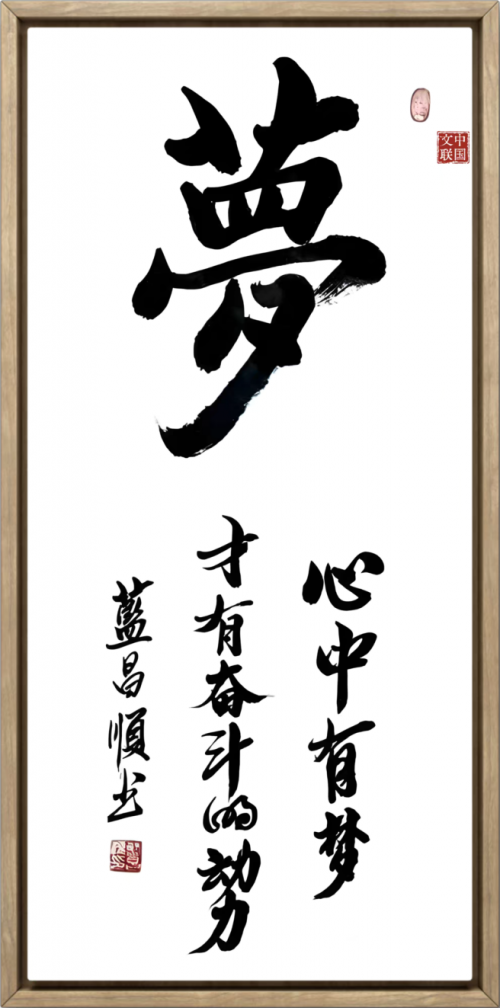 夢
中国文联
心中有梦
才有奋斗的动力
藍昌順书